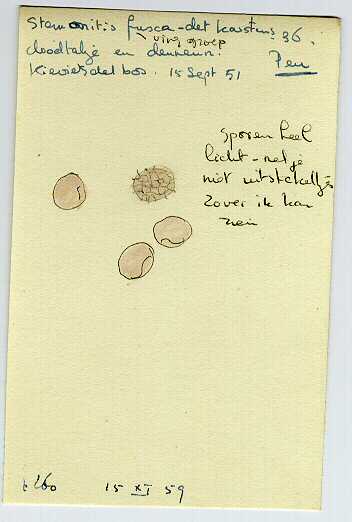 Stemonitis fusca - det Karstens 36.
virg groep
doodtakje en dennen.
Kievietsdel bos. 15 Sept 51
Pen
Sporen heel
licht - netje
niet uitstekeltjes
zover ik kan
zien
15 XI 59